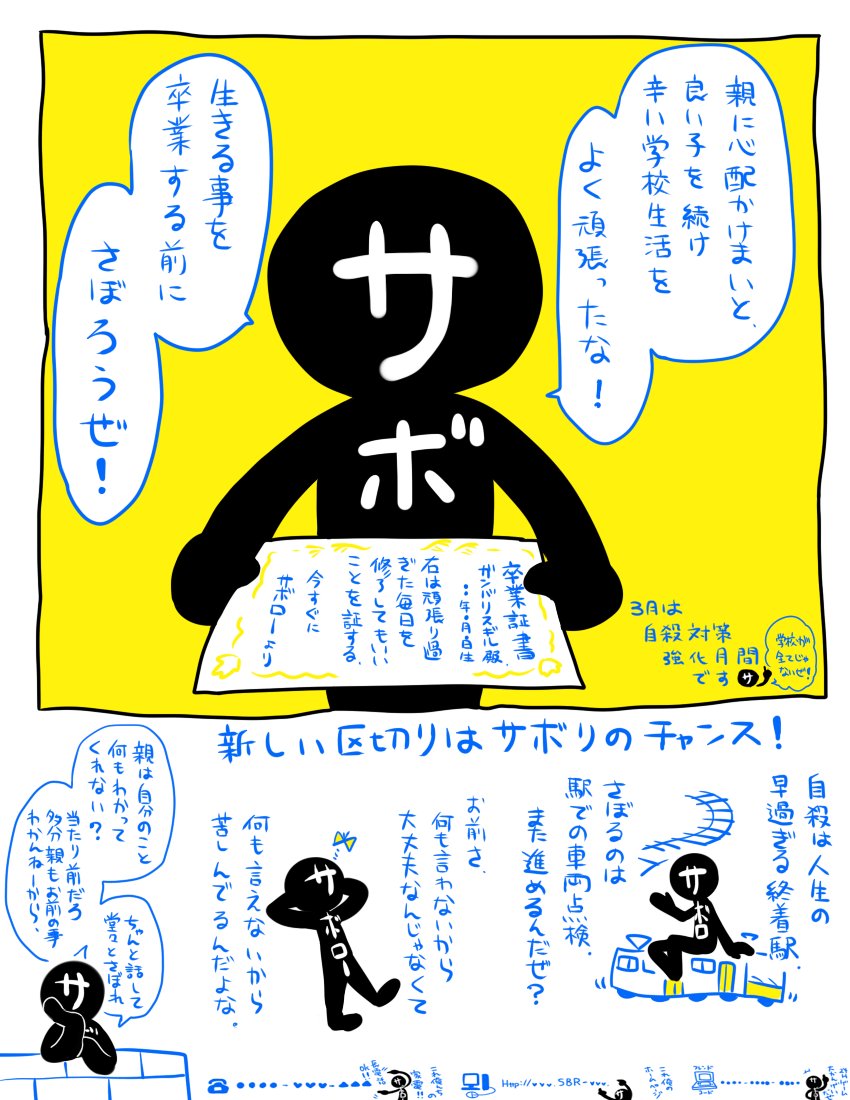 親に心配かけまいと、
良い子を続け
辛い学校生活を
よく頑張ったな!
生きる事を
卒業する前に
さぼろうぜ!
サボ
卒業証書
ガンバリスギル殿
:年・月・日生
右は頑張り過
ぎた毎日を
修了してもいい
ことを証する、
今すぐに
サボローより
3月は
自殺対策
強化月間
です
サ
学校が
全てじゃ
ないぜ!
新しい区切りはサボリのチャンス!
自殺は人生の
早過ぎる終着駅.
さぼるのは
駅での車両点検.
また進めるんだぜ?
サボロ
お前さ、
何も言わないから
大丈夫なんじゃなくて
何も言えないから
苦しんでるんだよな.
サボロー
親は自分のこと
何もわかって
くれない?
当たり前だろ
多分親もお前の事
わかんねーから、
ちゃんと話して
堂々とさぼれ
サボ
これ俺んちの
家電!!
Http://♥♥♥.SBR-♥♥♥.
これ俺の
ホームページ
フレンド
コード